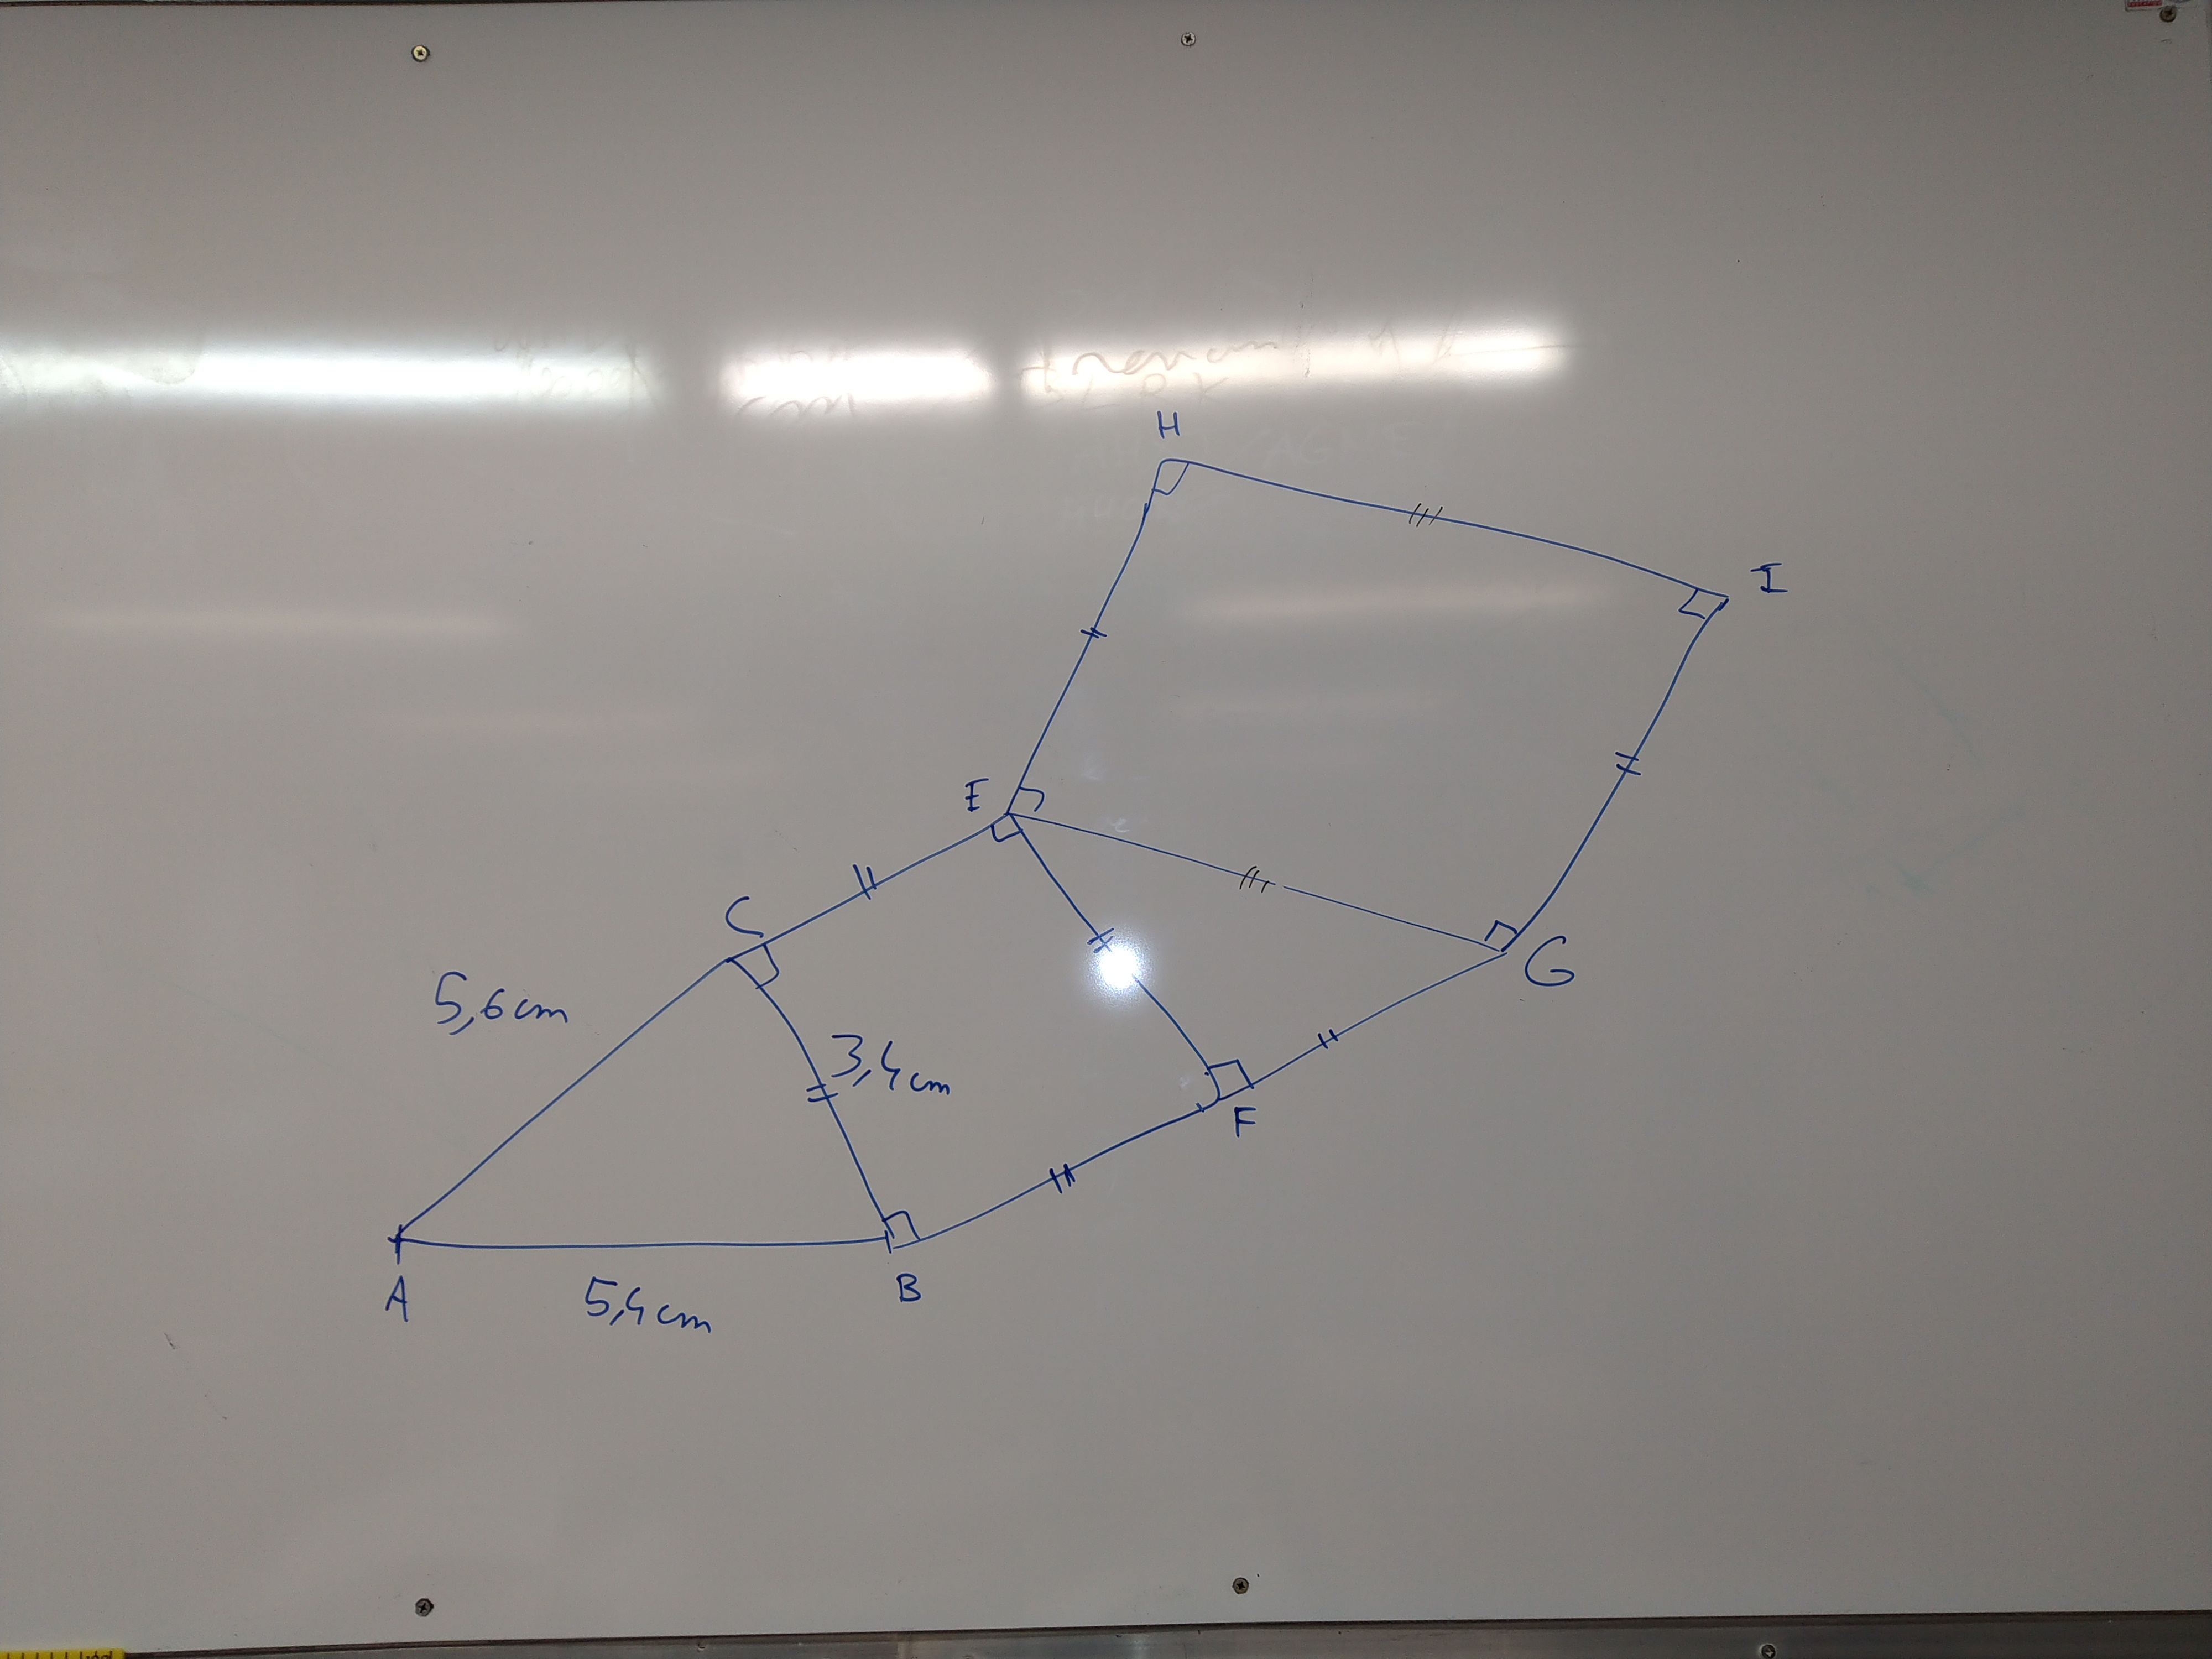 H
I
E
C
G
5,6cm
3,4cm
F
A
B
5,4cm